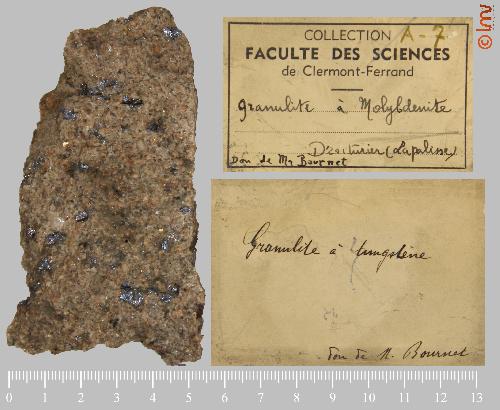 © lmv
COLLECTION A-7
FACULTE DES SCIENCES
de Clermont-Ferrand
Granulite à Molybdenite
Droiturier (Lapalisse)
Don de Mr Bournet
Granulite à tungstène
don de M. Bournet
0 1 2 3 4 5 6 7 8 9 10 11 12 13